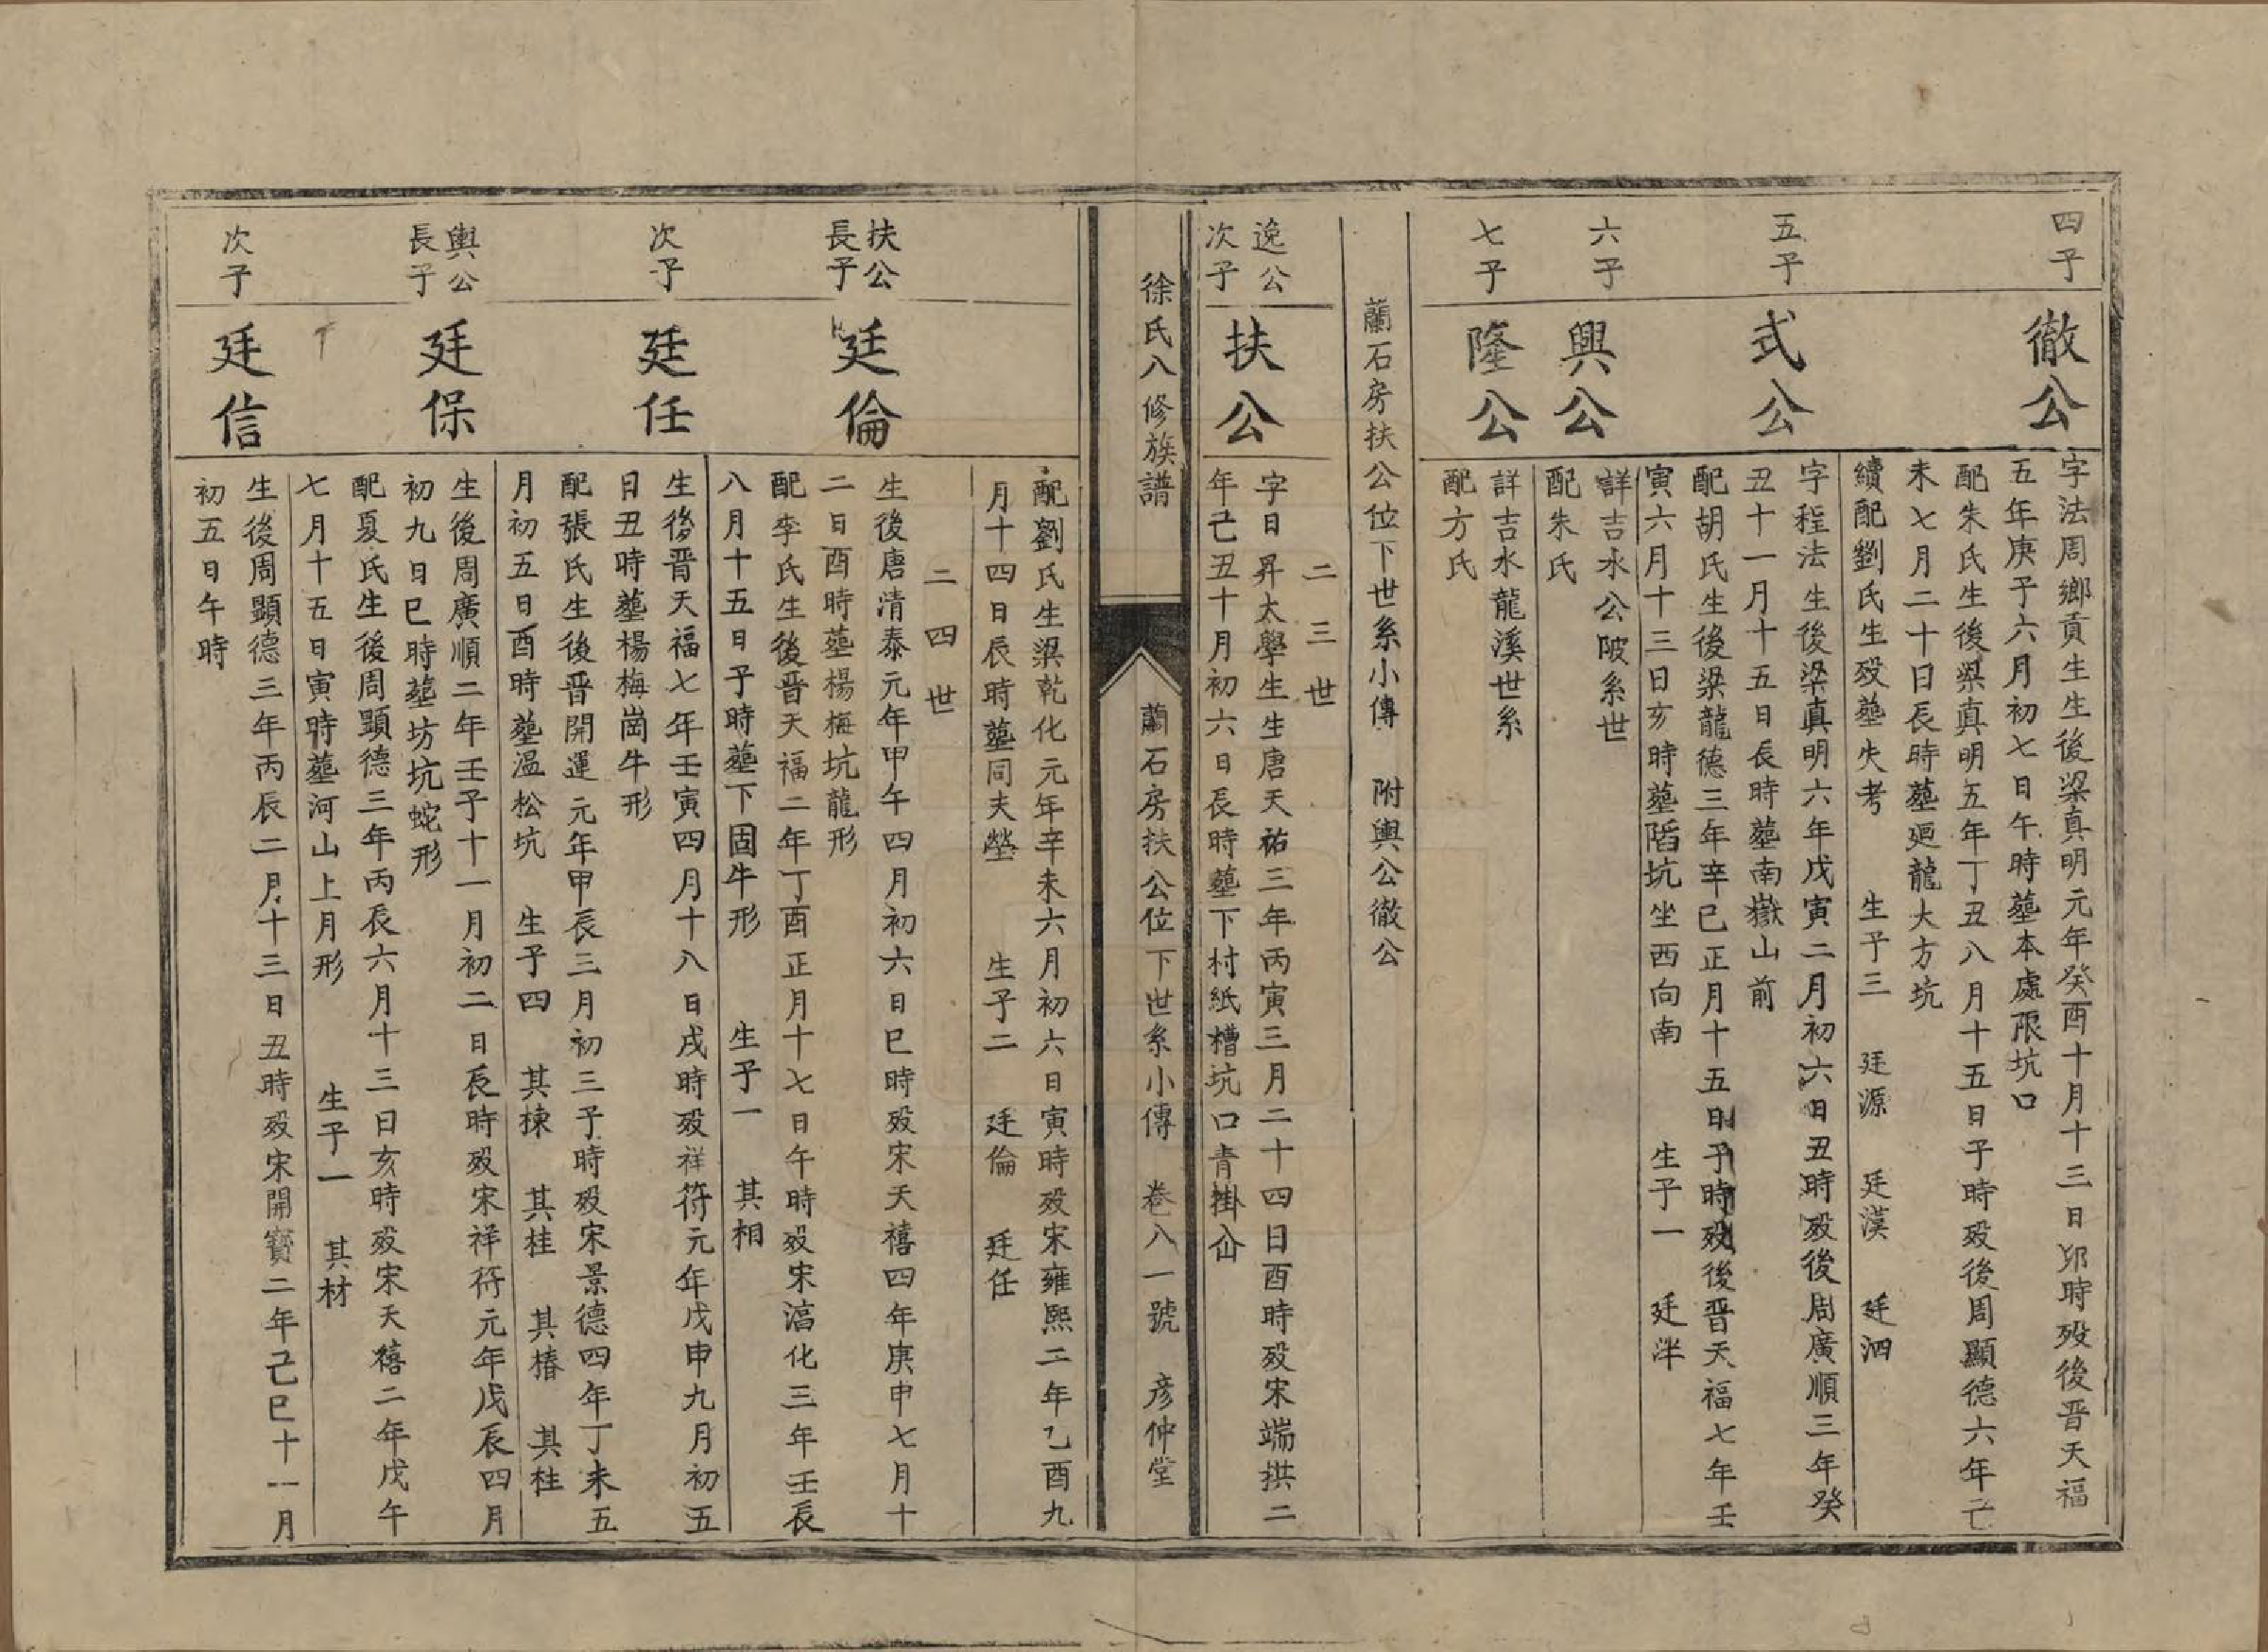 四子
徹公
字法周鄉貢生生後梁真明元年癸酉十月十三日卯時歿後晋天福
五年庚子六月初七日午時墓本處限坑口
配朱氏生後梁真明五年丁丑八月十五日子時歿後周顯德六年己
未七月二十日辰時墓廻龍大方坑
續配劉氏生歿墓失考 生子三 廷源 廷漢 廷泗
五子
式公
字程法生後梁真明六年戊寅二月初六日丑時歿後周廣順三年癸
丑十一月十五日長時墓南嶽山前
配胡氏生後梁龍德三年辛巳正月十五日子時歿後晋天福七年壬
寅六月十三日亥時墓䧟坑坐西向南 生子一 廷泮
六子
興公
詳吉水公陂系世
配朱氏
七子
隆公
詳吉水龍溪世系
配方氏
蘭石房扶公位下世系小傳 附輿公徹公
二三世
逸公
次子
扶公
字日昇太學生生唐天祐三年丙寅三月二十四日酉時歿宋端拱二
年己丑十月初六日長時墓下村紙槽坑口青掛仚
徐氏八修族譜
蘭石房扶公位下世系小傳 卷八一號 彦仲堂
配劉氏生梁乾化元年辛未六月初六日寅時歿宋雍熙二年乙酉九
月十四日辰時墓同夫塋 生子二 廷倫 廷任
二四世
扶公
長子
廷倫
生後唐清泰元年甲午四月初六日巳時歿宋天禧四年庚申七月十
二日酉時墓楊梅坑龍形
配李氏生後晋天福二年丁酉正月十七日午時歿宋滈化三年壬辰
八月十五日子時墓下固牛形 生子一 其相
次子
廷任
生後晋天福七年壬寅四月十八日戌時歿祥符元年戊申九月初五
日丑時墓楊梅崗牛形
配張氏生後晋開運元年甲辰三月初三子時歿宋景德四年丁未五
月初五日酉時墓溫松坑 生子四 其棟 其桂 其椿 其桂
輿公
長子
廷保
生後周廣順二年壬子十一月初二日辰時歿宋祥符元年戊辰四月
初九日巳時墓坊坑蛇形
配夏氏生後周顕德三年丙辰六月十三日亥時歿宋天禧二年戊午
七月十五日寅時墓河山上月形 生子一 其材
次子
廷信
生後周顯德三年丙辰二月十三日丑時歿宋開寶二年己巳十一月
初五日午時